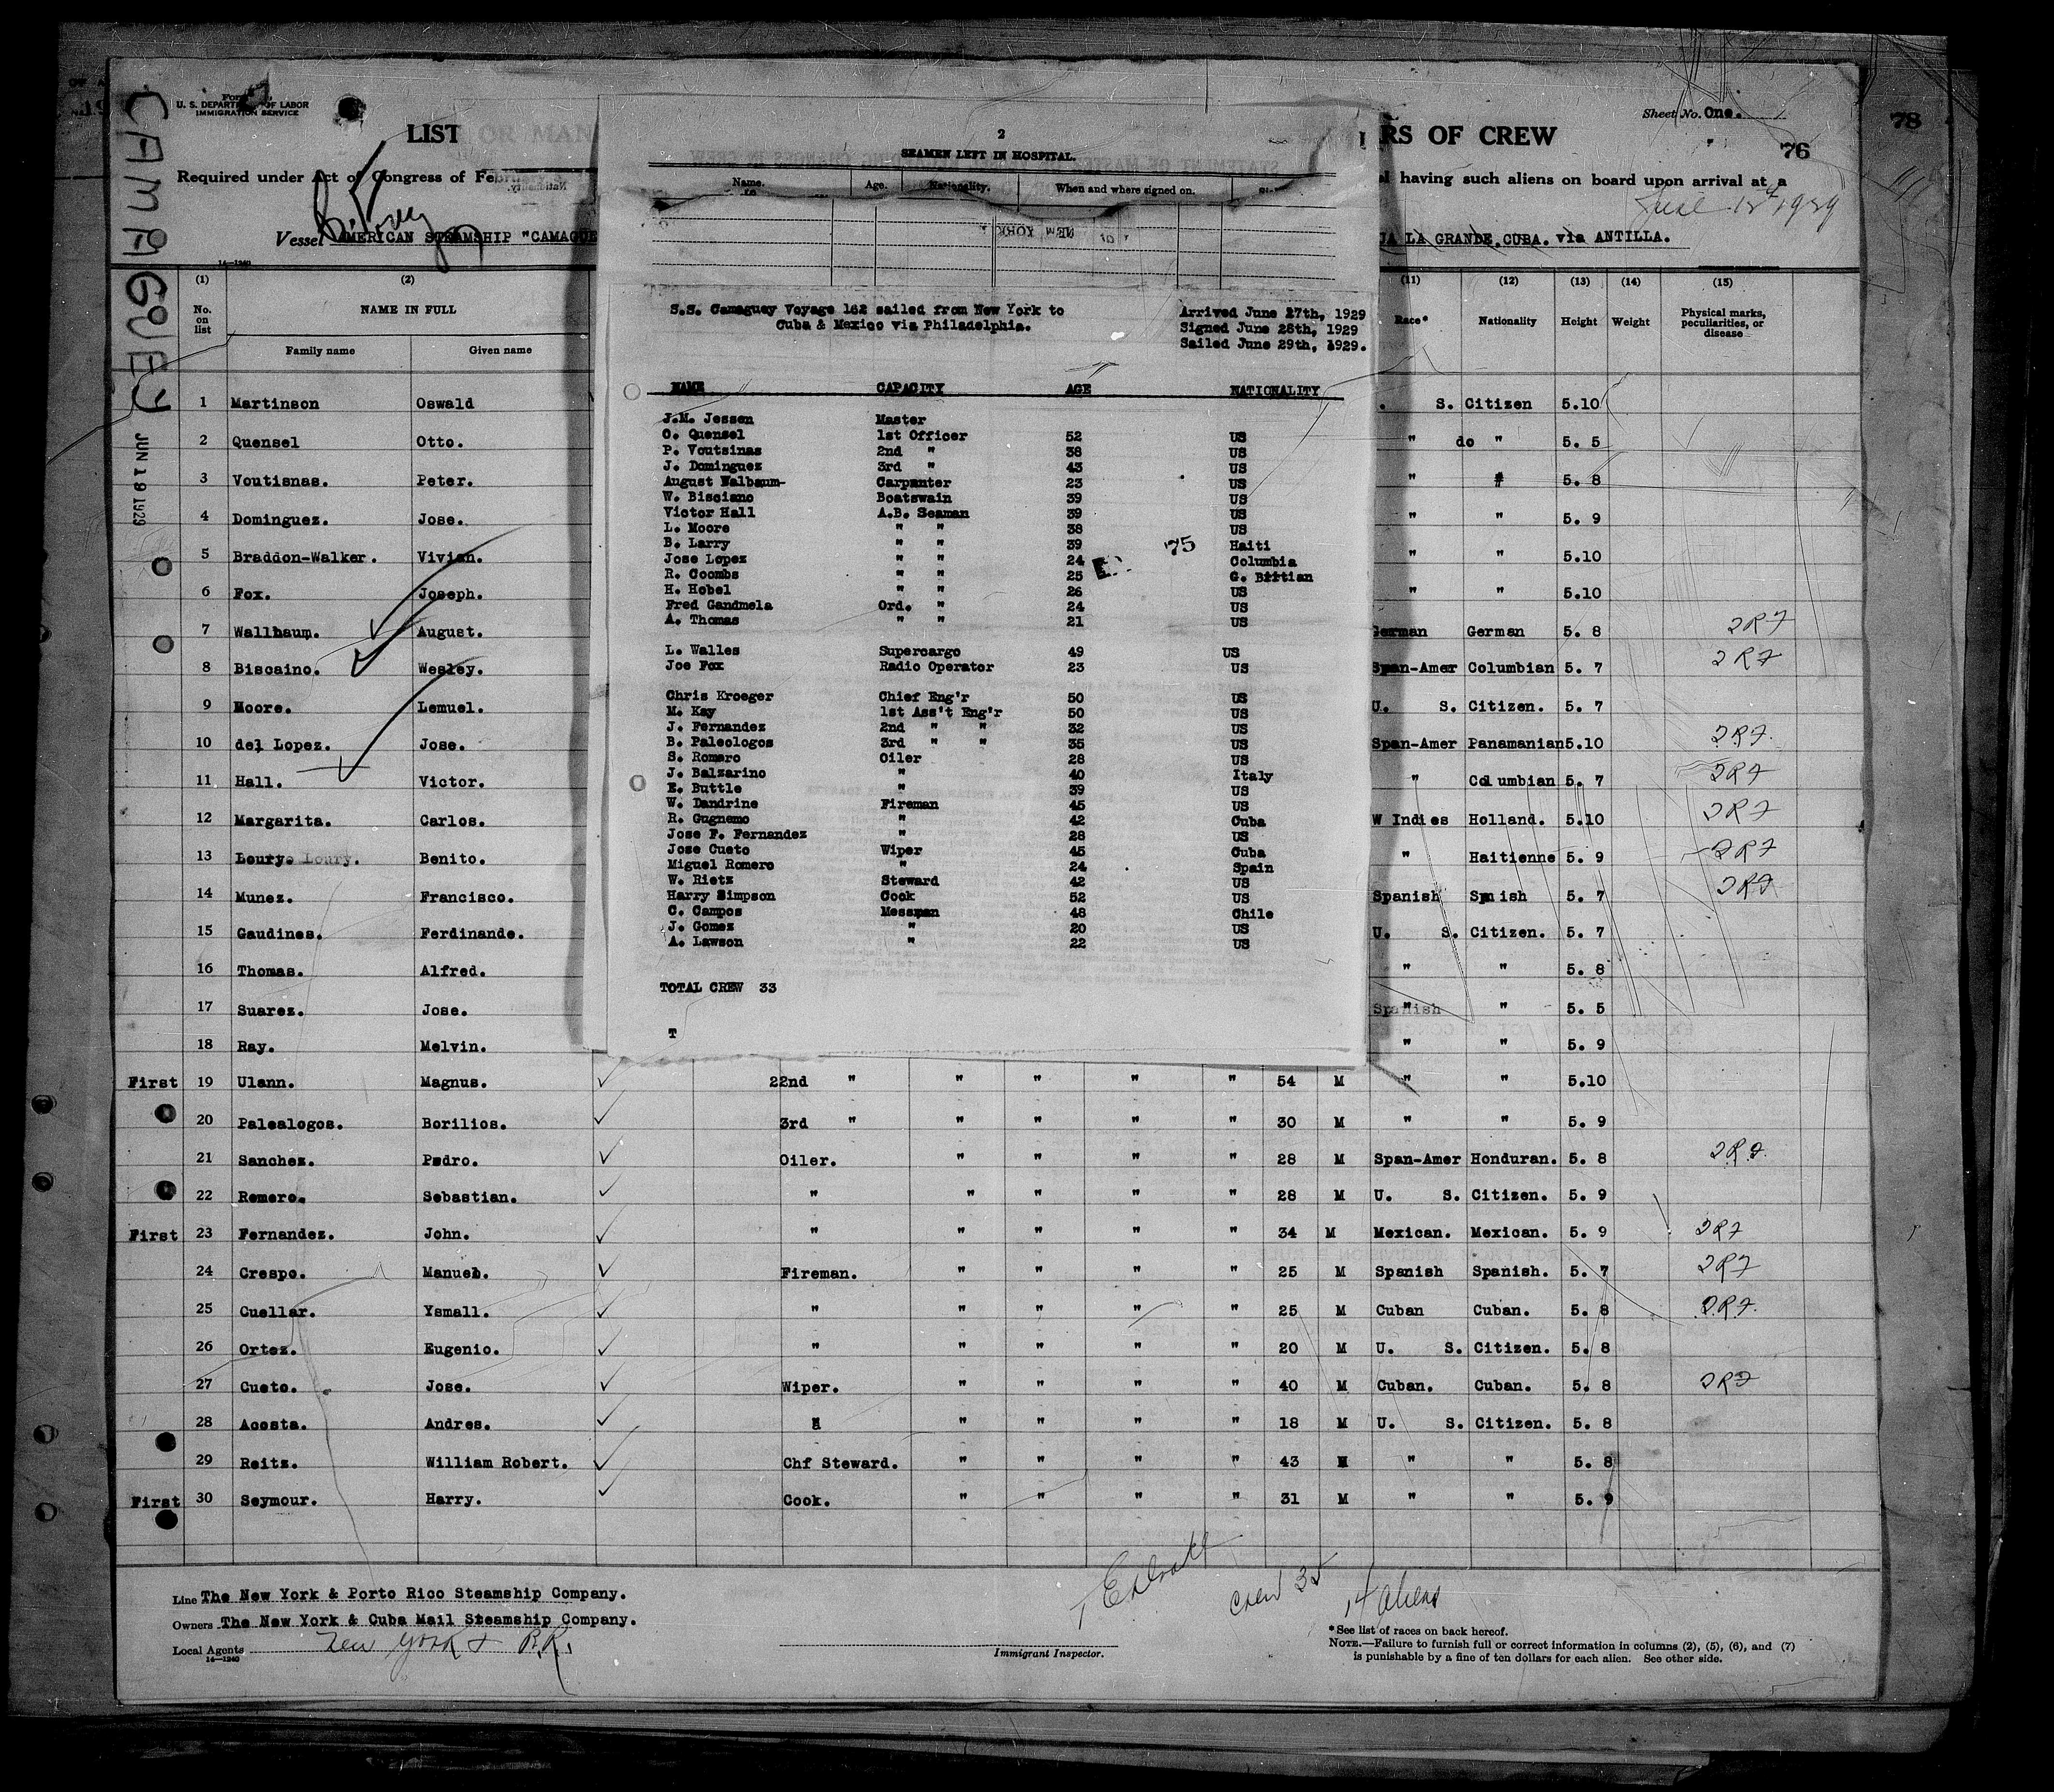 Form
U. S. DEPARTMENT OF LABOR
IMMIGRATION SERVICE
Sheet No. One.
LIST OR MAN
RS OF CREW
76
78
Required under Act of Congress of February
having such aliens on board upon arrival at a
June 12th 1929
Vessel AMERICAN STEAMSHIP "CAMAGUE
JA LA GRANDE, CUBA. via ANTILLA.
14—1240
CAMAGUEY
JUN 19 1929
2
SEAMEN LEFT IN HOSPITAL.
Name. Age. Nationality. When and where signed on.
NEW YORK
S.S. Camaguey Voyage 162 sailed from New York to
Cuba & Mexico via Philadelphia.
Arrived June 27th, 1929
Signed June 28th, 1929
Sailed June 29th, 1929.
NAME CAPACITY AGE NATIONALITY
J.M. Jessen Master
O. Quensel 1st Officer 52 US
P. Voutsinas 2nd " 38 US
J. Dominguez 3rd " 43 US
August Walbaum- Carpenter 23 US
W. Bisciano Boatswain 39 US
Victor Hall A.B. Seaman 39 US
L. Moore " " 38 US
B. Larry " " 39 Haiti
75
Jose Lopez " " 24 Columbia
R. Coombs " " 25 G. Brttian
H. Hobel " " 26 US
Fred Gandmela Ord. " 24 US
A. Thomas " " 21 US
L. Walles Supercargo 49 US
Joe Fox Radio Operator 23 US
Chris Kroeger Chief Eng'r 50 US
M. Kay 1st Ass't Eng'r 50 US
J. Fernandez 2nd " " 32 US
B. Paleologos 3rd " " 35 US
S. Romaro Oiler 28 US
J. Balzarino " 40 Italy
E. Buttle " 39 US
W. Dandrine Fireman 45 US
R. Gugnemo " 42 Cuba
Jose F. Fernandez " 28 US
Jose Cueto Wiper 45 Cuba
Miguel Romero " 24 Spain
W. Rietz Steward 42 US
Harry Simpson Cook 52 US
C. Campos Messman 48 Chile
J. Gomez " 20 US
A. Lawson " 22 US
TOTAL CREW 33
T
(1) (2) (11) (12) (13) (14) (15)
No. on list
NAME IN FULL
Family name Given name
Race* Nationality Height Weight
Physical marks, peculiarities, or disease
1 Martinson Oswald S. Citizen 5.10
2 Quensel Otto. " do " 5. 5
3 Voutisnas. Peter. " " 5. 8
4 Dominguez. Jose. " " 5. 9
5 Braddon-Walker. Vivian. " " 5.10
6 Fox. Joseph. " " 5.10
7 Wallbaum. August. German German 5. 8 2R7
8 Biscaino. Wesley. Span-Amer Columbian 5. 7 2R7
9 Moore. Lemuel. U. S. Citizen. 5. 7
10 del Lopez. Jose. Span-Amer Panamanian 5.10 2R7.
11 Hall. Victor. " Columbian 5. 7 2R7
12 Margarita. Carlos. W Indies Holland. 5.10 2R7
13 Loury. Benito. " Haitienne 5. 9 2R7
14 Munez. Francisco. Spanish Spnish 5. 7 2R7
15 Gaudines. Ferdinande. U. S. Citizen. 5. 7
16 Thomas. Alfred. " " 5. 8
17 Suarez. Jose. Spanish " 5. 5
18 Ray. Melvin. " " 5. 9
First 19 Ulann. Magnus. 22nd " " " " " 54 M " " 5.10
20 Palealogos. Borilios. 3rd " " " " " 30 M " " 5. 9
21 Sanchez. Pedro. Oiler. " " " " 28 M Span-Amer Honduran. 5. 8 2R7.
22 Romero. Sebastian. " " " " " 28 M U. S. Citizen. 5. 9
First 23 Fernandez. John. " " " " " 34 M Mexican. Mexican. 5. 9 2R7
24 Crespo. Manuel. Fireman. " " " " 25 M Spanish Spanish. 5. 7 2R7
25 Cuellar. Ysmall. " " " " " 25 M Cuban Cuban. 5. 8 2R7.
26 Ortez. Eugenio. " " " " " 20 M U. S. Citizen. 5. 8
27 Cueto. Jose. Wiper. " " " " 40 M Cuban. Cuban. 5. 8 2R7
28 Acosta. Andres. " " " " " 18 M U. S. Citizen. 5. 8
29 Reitz. William Robert. Chf Steward. " " " " 43 M " " 5. 8
First 30 Seymour. Harry. Cook. " " " " 31 M " " 5. 9
crew 35
14 aliens
Line The New York & Porto Rico Steamship Company.
Owners The New York & Cuba Mail Steamship Company.
Local Agents New York & P.R.
14—1240
Immigrant Inspector.
*See list of races on back hereof.
NOTE.—Failure to furnish full or correct information in columns (2), (5), (6), and (7)
is punishable by a fine of ten dollars for each alien. See other side.